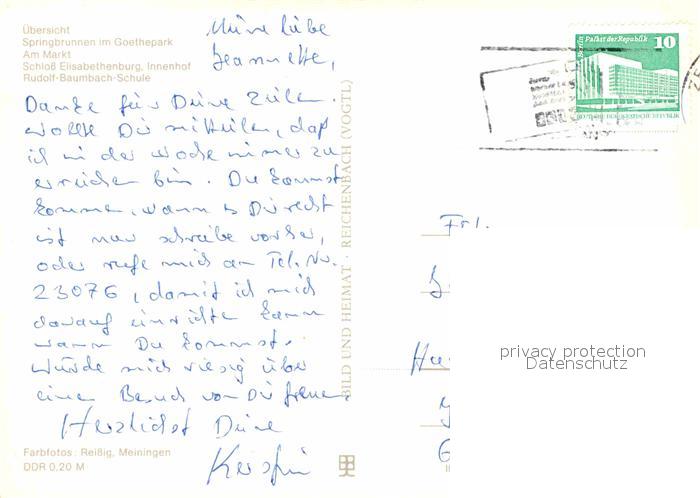 Übersicht
Springbrunnen im Goethepark
Am Markt
Schloß Elisabethenburg, Innenhof
Rudolf-Baumbach-Schule
Meine liebe
Jeannette,
Danke für Deine Zeilen.
Wollte Dir mitteilen, daß
ich in der Woche immer zu
erreichen bin. Du kannst
kommen, wann es Dir recht
ist nur schreibe vorher,
oder rufe mich an Tel. Nr.
23076, damit ich mich
darauf einrichten kann
wann Du kommst.
Würde mich riesig über
einen Besuch von Dir freuen.
Herzlichst Deine
Kerstin
Farbfotos: Reißig, Meiningen
DDR 0,20 M
BILD UND HEIMAT · REICHENBACH (VOGTL)
Berlin Palast der Republik 10
Frl.
privacy protection
Datenschutz